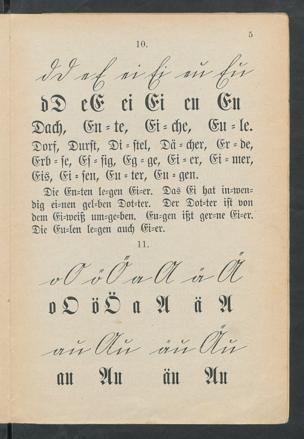 5
10.
dD eE ei Ei eu Eu
dD eE ei Ei eu Eu
Dach, En-te, Ei-che, Eu-le.
Dorf, Durst, Di-stel, Dä-cher, Er-de,
Erb-se, Es-sig, Eg-ge, Ei-er, Ei-mer,
Eis, Ei-sen, Eu-ter, Eu-gen.
Die En=ten le=gen Ei=er. Das Ei hat in=wen=
dig ei=nen gel=ben Dot=ter. Der Dot=ter ist von
dem Ei=weiß um=ge=ben. Eu=gen ißt ger=ne Ei=er.
Die Eu=len le=gen auch Ei=er.
11.
oO öÖ aA äÄ
oO öÖ a A ä Ä
au Au äu Äu
au Au äu Äu